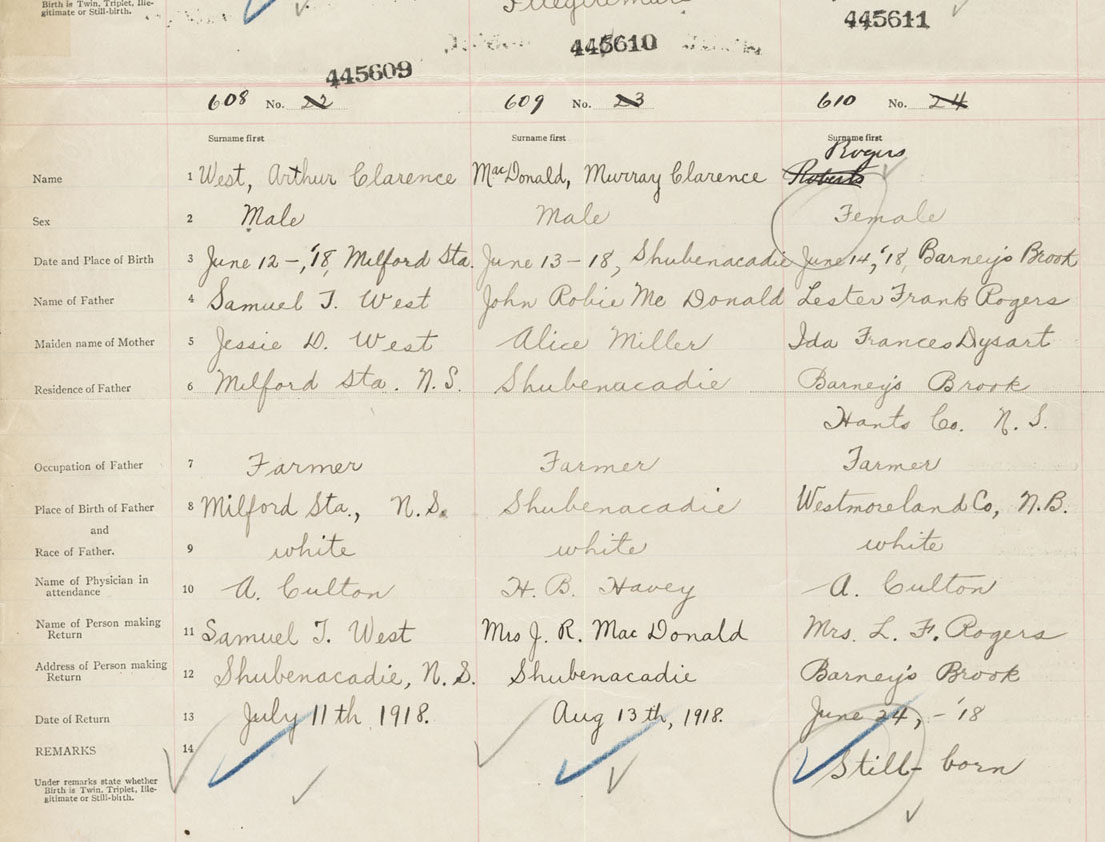 Birth is Twin, Triplet, Ille-
gitimate or Still-birth.
445609
445610
445611
608 No. 22 609 No. 23 610 No. 24
Surname first Surname first Surname first
Rogers
Name 1 West, Arthur Clarence MacDonald, Murray Clarence Roberts
Sex 2 Male Male Female
Date and Place of Birth 3 June 12-,'18, Milford Sta. June 13-18, Shubenacadie June 14,'18, Barney's Brook
Name of Father 4 Samuel T. West John Robie Mc Donald Lester Frank Rogers
Maiden name of Mother 5 Jessie D. West Alice Miller Ida Frances Dysart
Residence of Father 6 Milford Sta. N.S. Shubenacadie Barney's Brook
Hants Co. N.S.
Occupation of Father 7 Farmer Farmer Farmer
Place of Birth of Father 8 Milford Sta., N.S. Shubenacadie Westmoreland Co, N.B.
and
Race of Father. 9 white white white
Name of Physician in
attendance 10 A. Culton H. B. Havey A. Culton
Name of Person making
Return 11 Samuel T. West Mrs J. R. MacDonald Mrs. L. F. Rogers
Address of Person making
Return 12 Shubenacadie, N.S. Shubenacadie Barney's Brook
Date of Return 13 July 11th 1918. Aug 13th, 1918. June 24,-'18
REMARKS 14 Still-born
Under remarks state whether
Birth is Twin, Triplet, Ille-
gitimate or Still-birth.